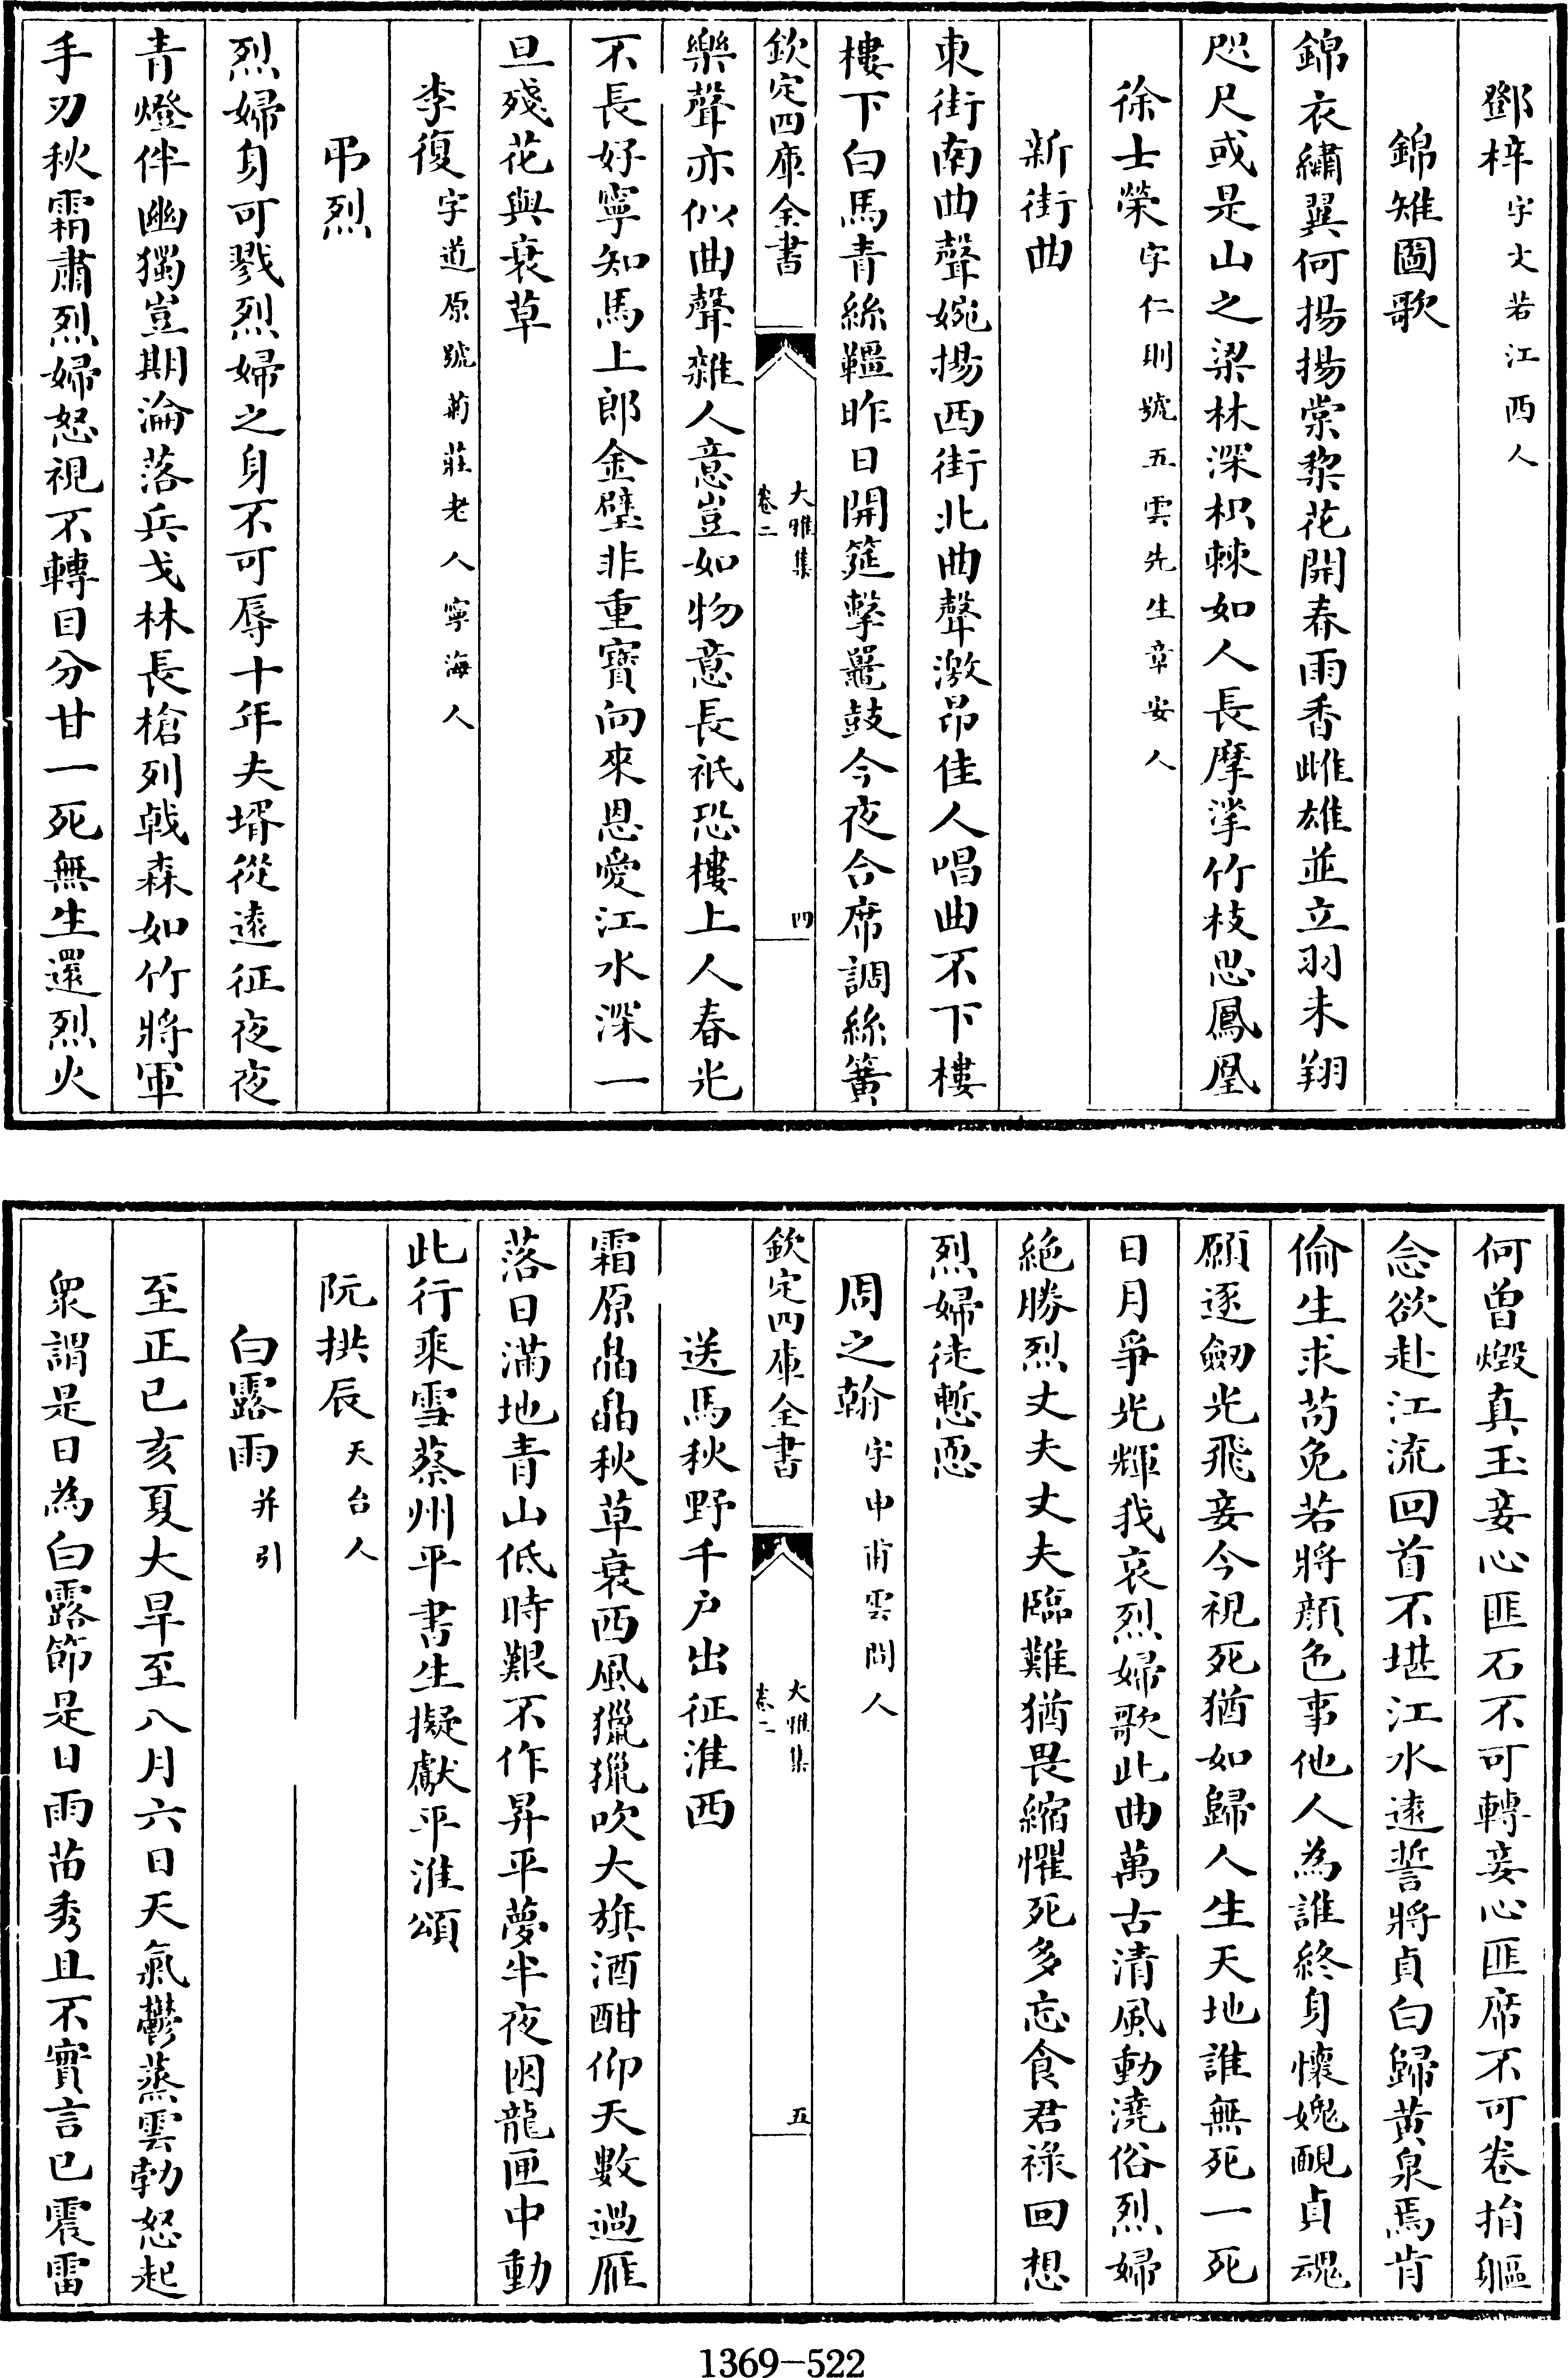 鄧梓字文若江西人
錦雉圖歌
錦衣繡翼何揚揚棠棃花開春雨香雌雄並立羽未翔
咫尺或是山之梁林深枳棘如人長摩挲竹枝思鳳凰
徐士榮字仁則號五雲先生章安人
新街曲
東街南曲聲婉揚西街北曲聲激昂佳人唱曲不下樓
樓下白馬青絲韁昨日開筵擊鼉鼓今夜合席調絲簧
欽定四庫全書
大雅集
卷二
四
樂聲亦似曲聲雜人意豈如物意長祇恐樓上人春光
不長好寧知馬上郎金璧非重寶向來恩愛江水深一
旦殘花與衰草
李復字道原號菊莊老人寧海人
弔烈
烈婦身可戮烈婦之身不可辱十年夫壻從遠征夜夜
青燈伴幽獨豈期淪落兵戈林長槍列戟森如竹將軍
手刃秋霜肅烈婦怒視不轉目分甘一死無生還烈火
何曽燬真玉妾心匪石不可轉妾心匪席不可卷捐軀
念欲赴江流回首不堪江水遠誓將貞白歸黄泉焉肯
偷生求苟免若將顔色事他人為誰終身懷媿靦貞魂
願逐劒光飛妾今視死猶如歸人生天地誰無死一死
日月爭光輝我哀烈婦歌此曲萬古清風動澆俗烈婦
絶勝烈丈夫丈夫臨難猶畏縮懼死多忘食君禄回想
烈婦徒慙恧
周之翰字申甫雲間人
欽定四庫全書
大雅集
卷二
五
送馬秋野千户出征淮西
霜原皛皛秋草衰西風獵獵吹大旗酒酣仰天數過雁
落日滿地青山低時艱不作昇平夢半夜囦龍匣中動
此行乘雪蔡州平書生擬獻平淮頌
阮拱辰天台人
白露雨并引
至正己亥夏大旱至八月六日天氣鬱蒸雲勃怒起
衆謂是日為白露節是日雨苗秀且不實言已震雷
1369－522